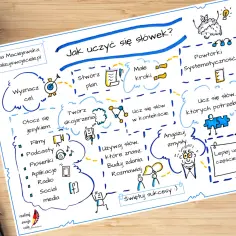 Jak uczyć się słówek?
Wyznacz
cel
Stwórz
plan
Małe
kroki
Powtórki
Systematyczność
Otocz się
językiem
Filmy
Podcasty
Piosenki
Aplikacje
Radio
Social
media
Twórz
skojarzenia
Ucz się słów
w kontekście
Ucz się słów
których potrze
Używaj słów,
które znasz
Buduj zdania
Rozmawiaj
Angażuj
zmysły
Lepiej
częście
Świętuj sukcesy!